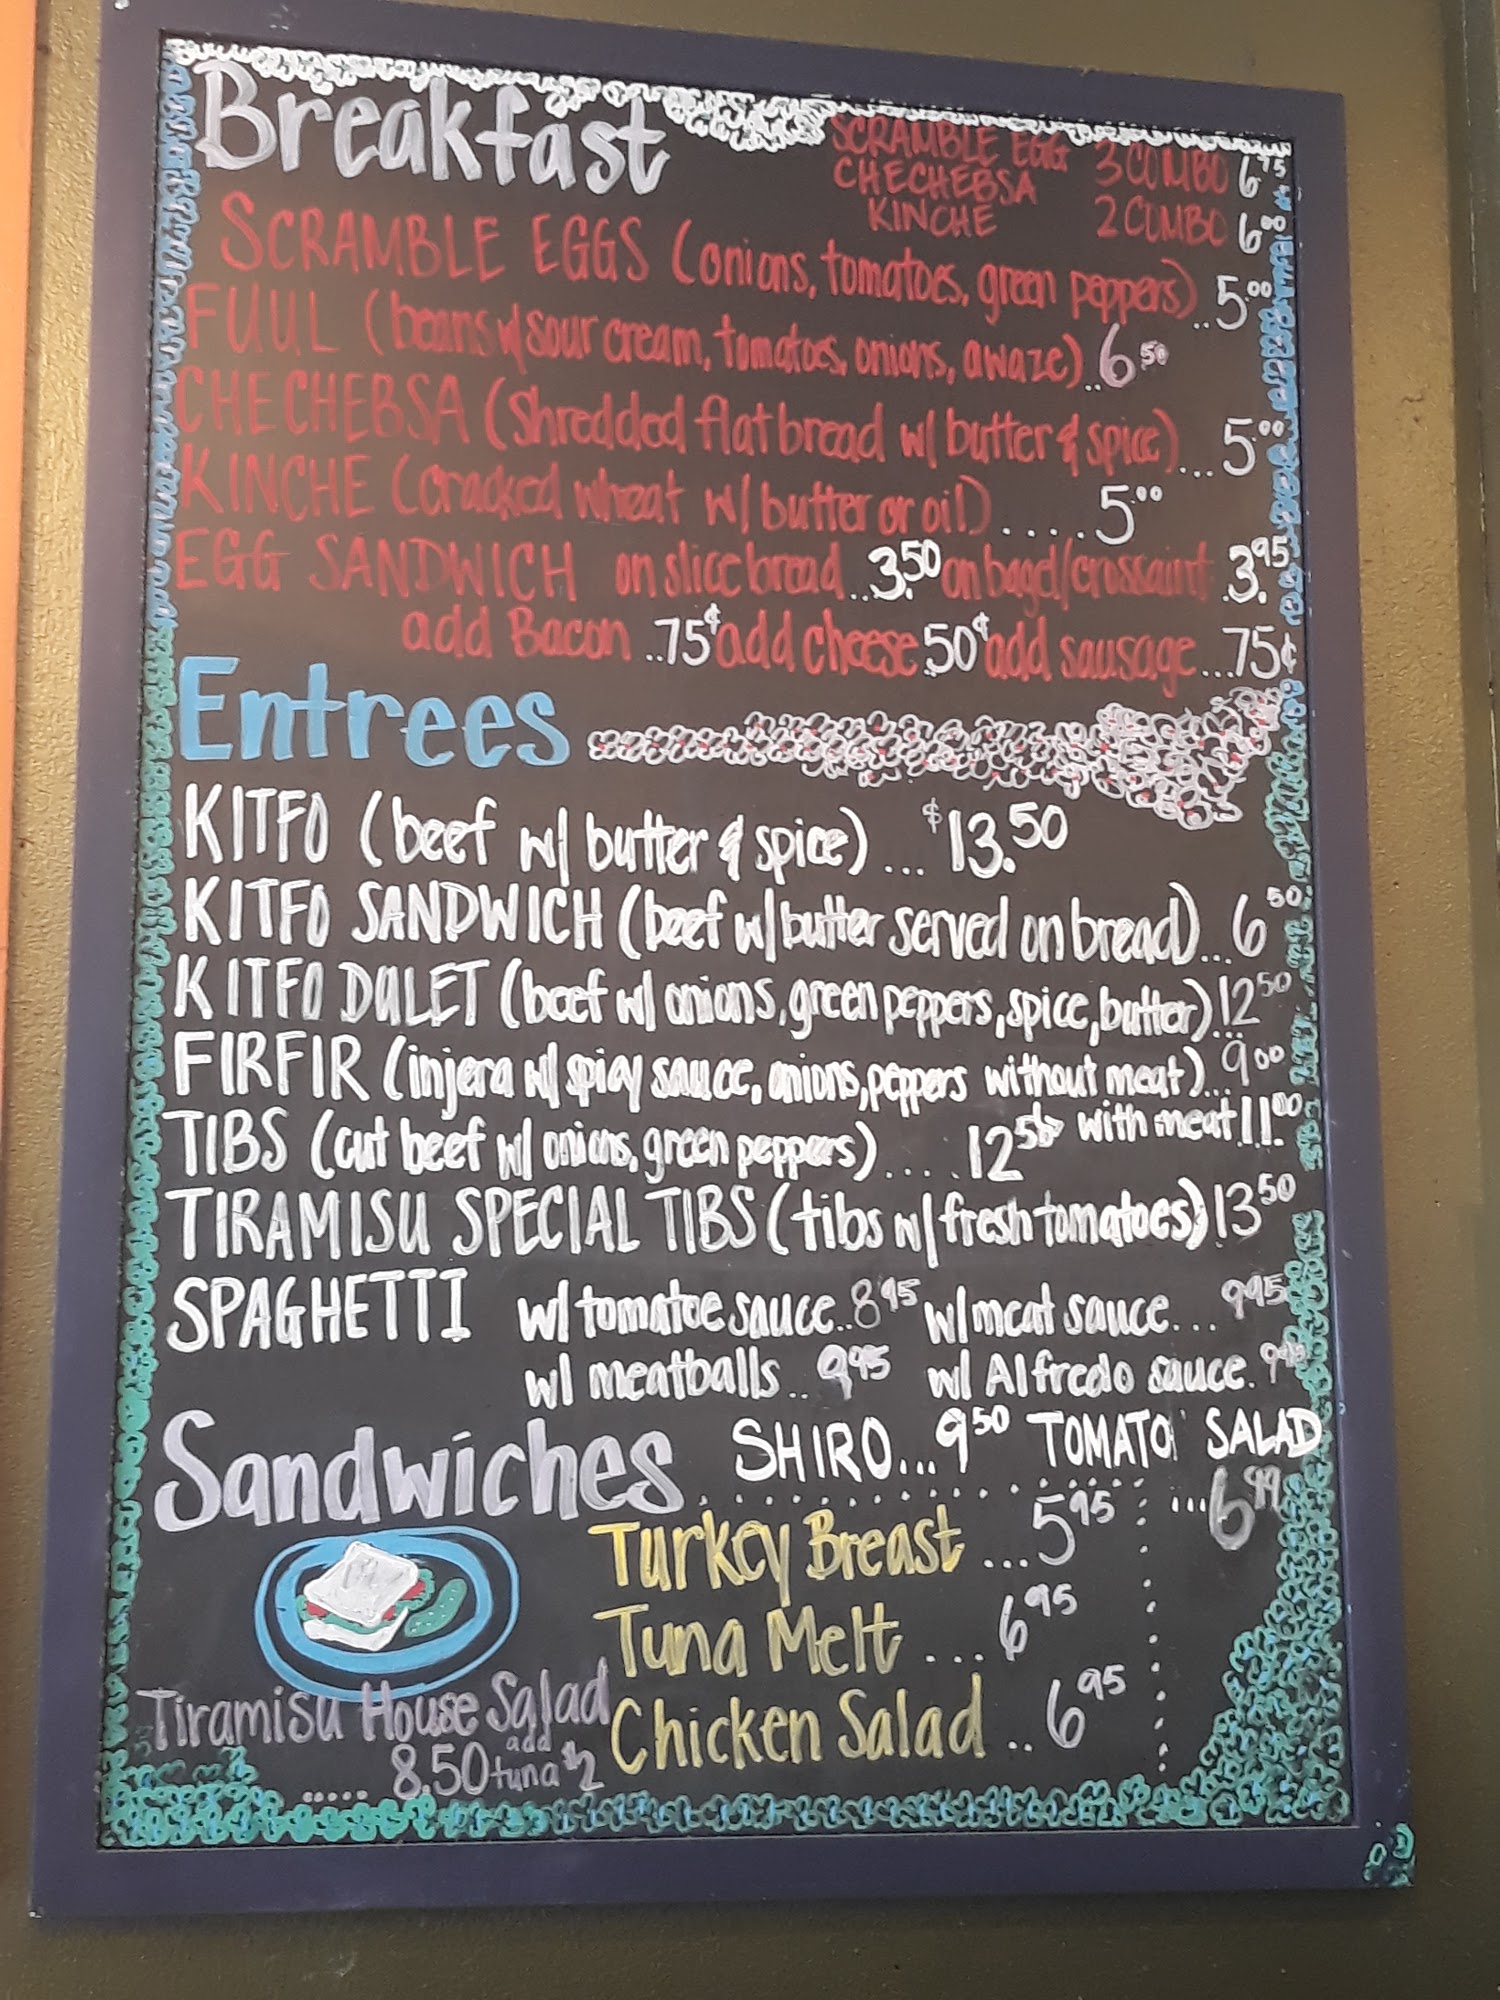 Breakfast
SCRAMBLE EGG 3 COMBO 6.75
CHECHEBSA
KINCHE 2 COMBO 6.00
SCRAMBLE EGGS (onions, tomatoes, green peppers)..5.00
FUUL (beans w/ sour cream, tomatoes, onions, awaze)..6.50
CHECHEBSA (shredded flat bread w/ butter & spice)...5.00
KINCHE (cracked wheat w/ butter or oil).....5.00
EGG SANDWICH on slice bread..3.50 on bagel/crossaint 3.95
add Bacon ..75¢ add cheese .50¢ add sausage...75¢
Entrees
KITFO (beef w/ butter & spice)... $13.50
KITFO SANDWICH (beef w/ butter served on bread)...6.50
KITFO DULET (beef w/ onions, green peppers, spice, butter)..12.50
FIRFIR (injera w/ spicy sauce, onions, peppers without meat)...9.00
with meat 11.00
TIBS (cut beef w/ onions, green peppers).... 12.50
TIRAMISU SPECIAL TIBS (tibs w/ fresh tomatoes) 13.50
SPAGHETTI w/ tomatoe sauce..8.95 w/ meat sauce... 9.95
w/ meatballs.. 9.95 w/ Alfredo sauce.
SHIRO...9.50 TOMATO SALAD
...6.99
Sandwiches
Turkey Breast ...5.95
Tuna Melt ...6.95
Chicken Salad ..6.95
Tiramisu House Salad
..... 8.50 add tuna $2